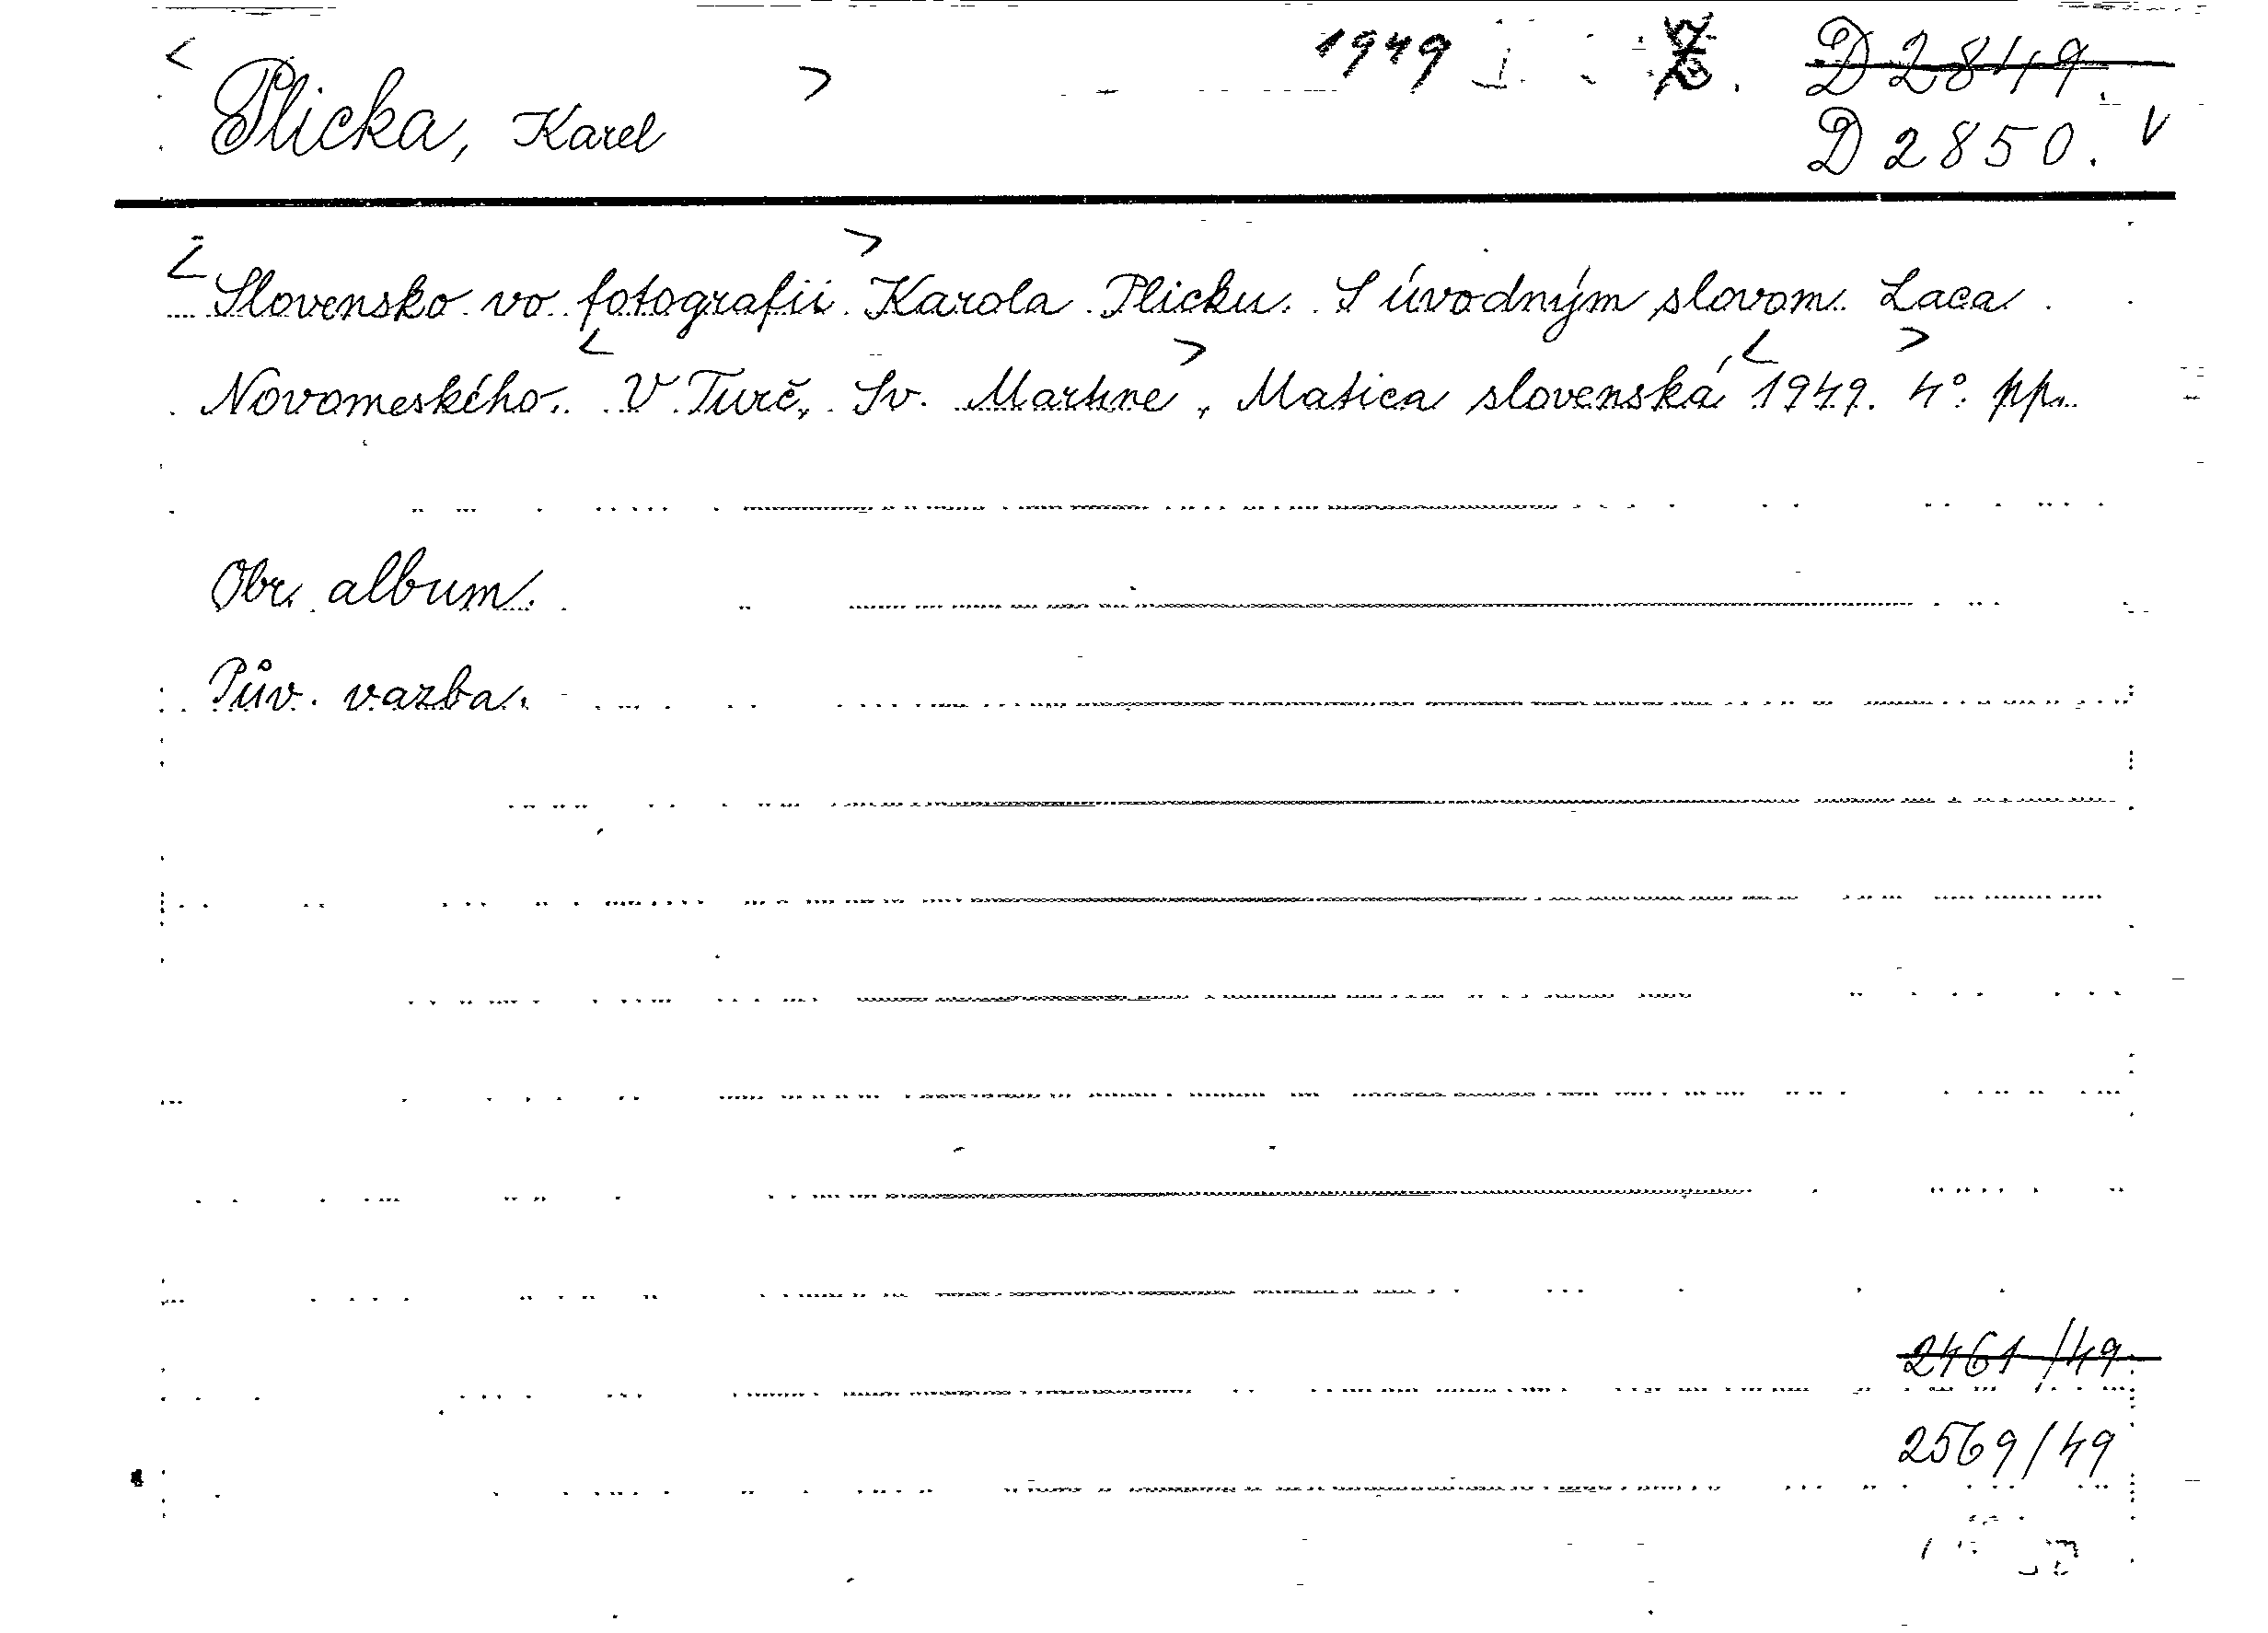 1949 D 2849.
< Plicka, Karel > D 2850. V
< Slovensko vo fotografii > Karola Plicku. S úvodným slovom Laca
Novomeského. < V Turč. Sv. Martine >, Matica slovenská, < 1949. > 4° pp.
Obr. album.
Pův. vazba.
2461/49
2569/49